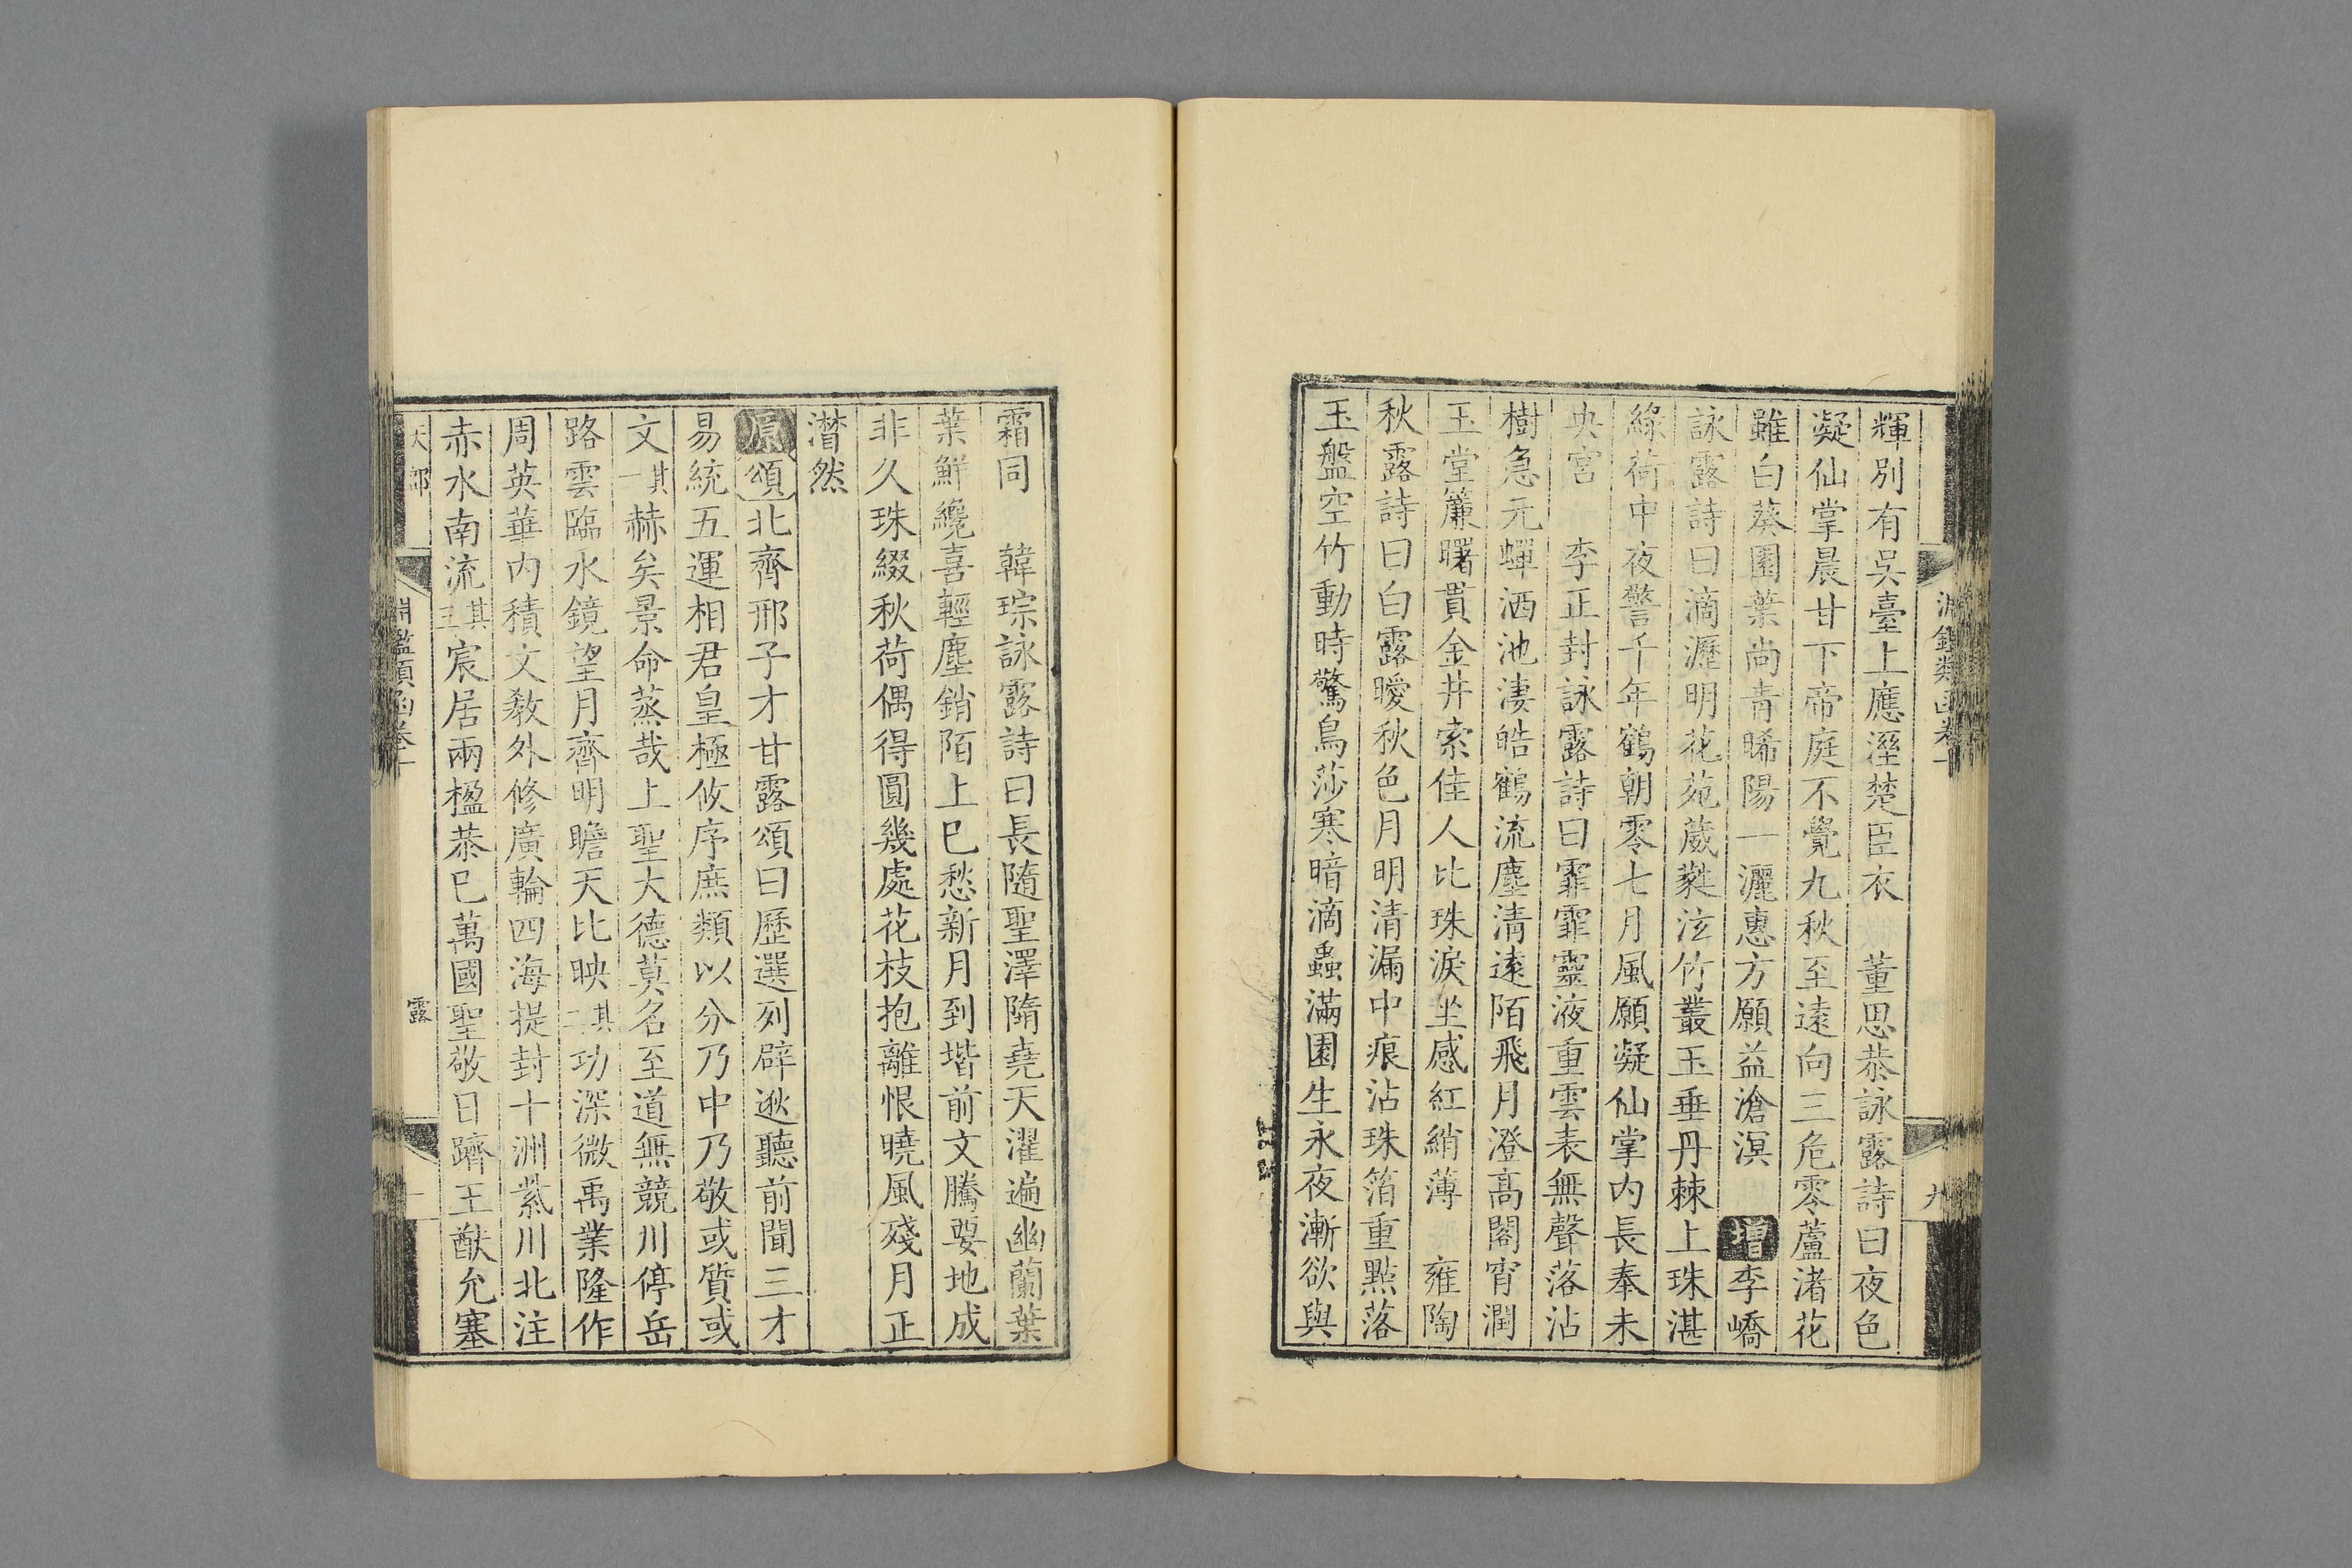 輝別有吳臺上應溼楚臣衣　董思恭詠露詩曰夜色
凝仙掌晨甘下帝庭不覺九秋至遠向三危零蘆渚花
雖白葵園葉尚青晞陽一灑惠方願益滄溟　增李嶠
詠露詩曰滴瀝明花苑葳蕤泫竹叢玉垂丹棘上珠湛
綠荷中夜警千年鶴朝零七月風願凝仙掌內長奉未
央宮　李正封詠露詩曰霏霏靈液重雲表無聲落沾
樹急元蟬洒池淒皓鶴流塵清遠陌飛月澄高閣宵潤
玉堂簾曙貫金井索佳人比珠淚坐感紅綃薄　雍陶
秋露詩曰白露曖秋色月明清漏中痕沾珠箔重點落
玉盤空竹動時驚鳥莎寒暗滴蟲滿園生永夜漸欲與
霜同　韓琮詠露詩曰長隨聖澤隋堯天濯遍幽蘭葉
葉鮮纔喜輕塵銷陌上已愁新月到堦前文騰要地成
非久珠綴秋荷偶得圓幾處花枝抱離恨曉風殘月正
潸然
原頌北齊邢子才甘露頌曰歷選列辟逖聽前聞三才
易統五運相君皇極攸序庶類以分乃中乃敬或質或
文其一赫矣景命蒸哉上聖大德莫名至道無競川停岳
路雲臨水鏡望月齊明瞻天比映其二功深微禹業隆作
周英華內積文教外修廣輪四海提封十洲紫川北注
赤水南流其三宸居兩楹恭已萬國聖敬日躋王猷允塞
天部
淵鑑類函卷十
露